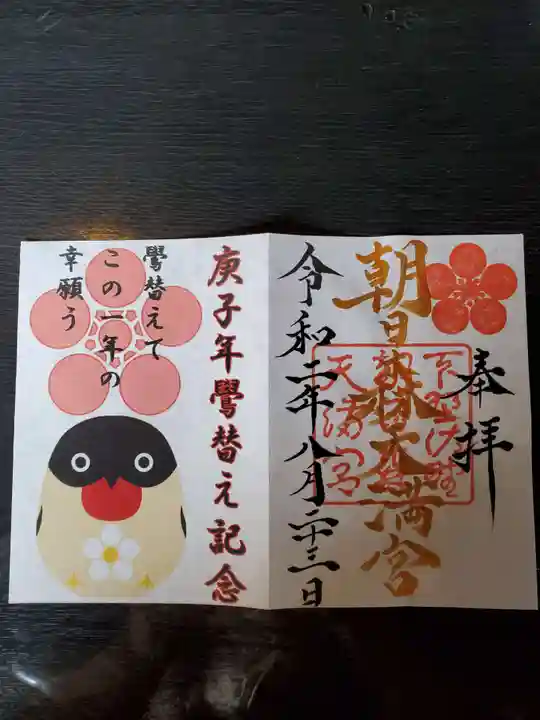 奉拝
朝日森天満宮
天満宮
令和二年八月二十三日
庚子年鷽替え記念
鷽替えて
この一年の
幸願う